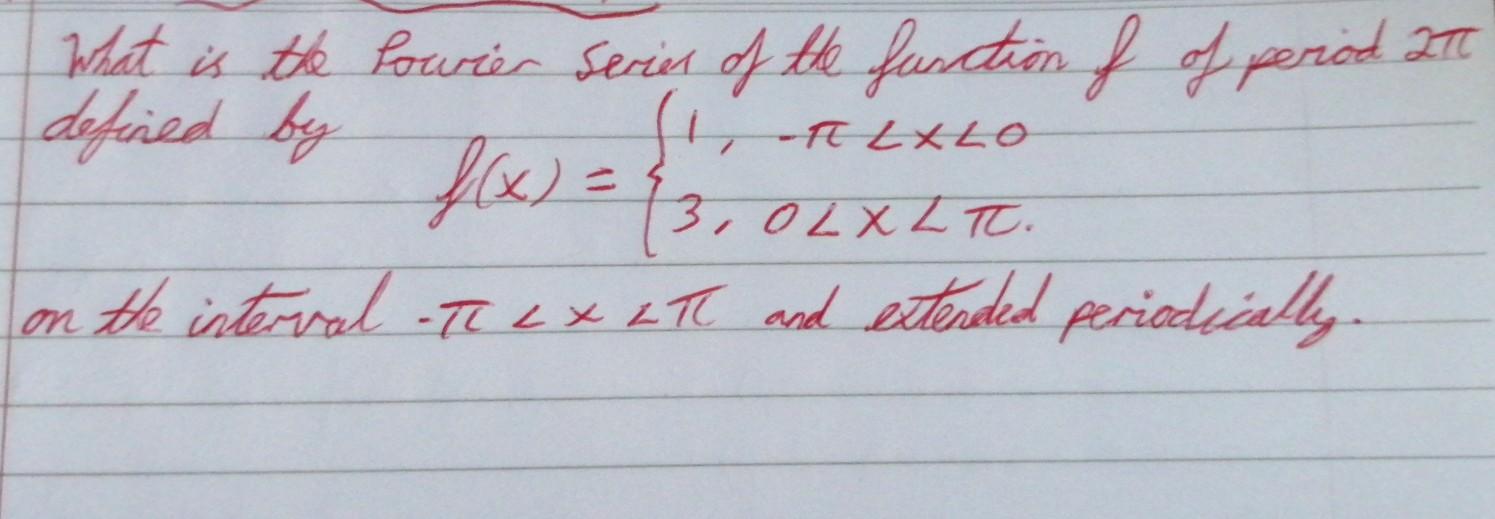 What is the Fourier Series of the function f of period 2π
defined by
f(x) = { 1, -π < x < 0
3, 0 < x < π.
on the interval -π < x < π and extended periodically.